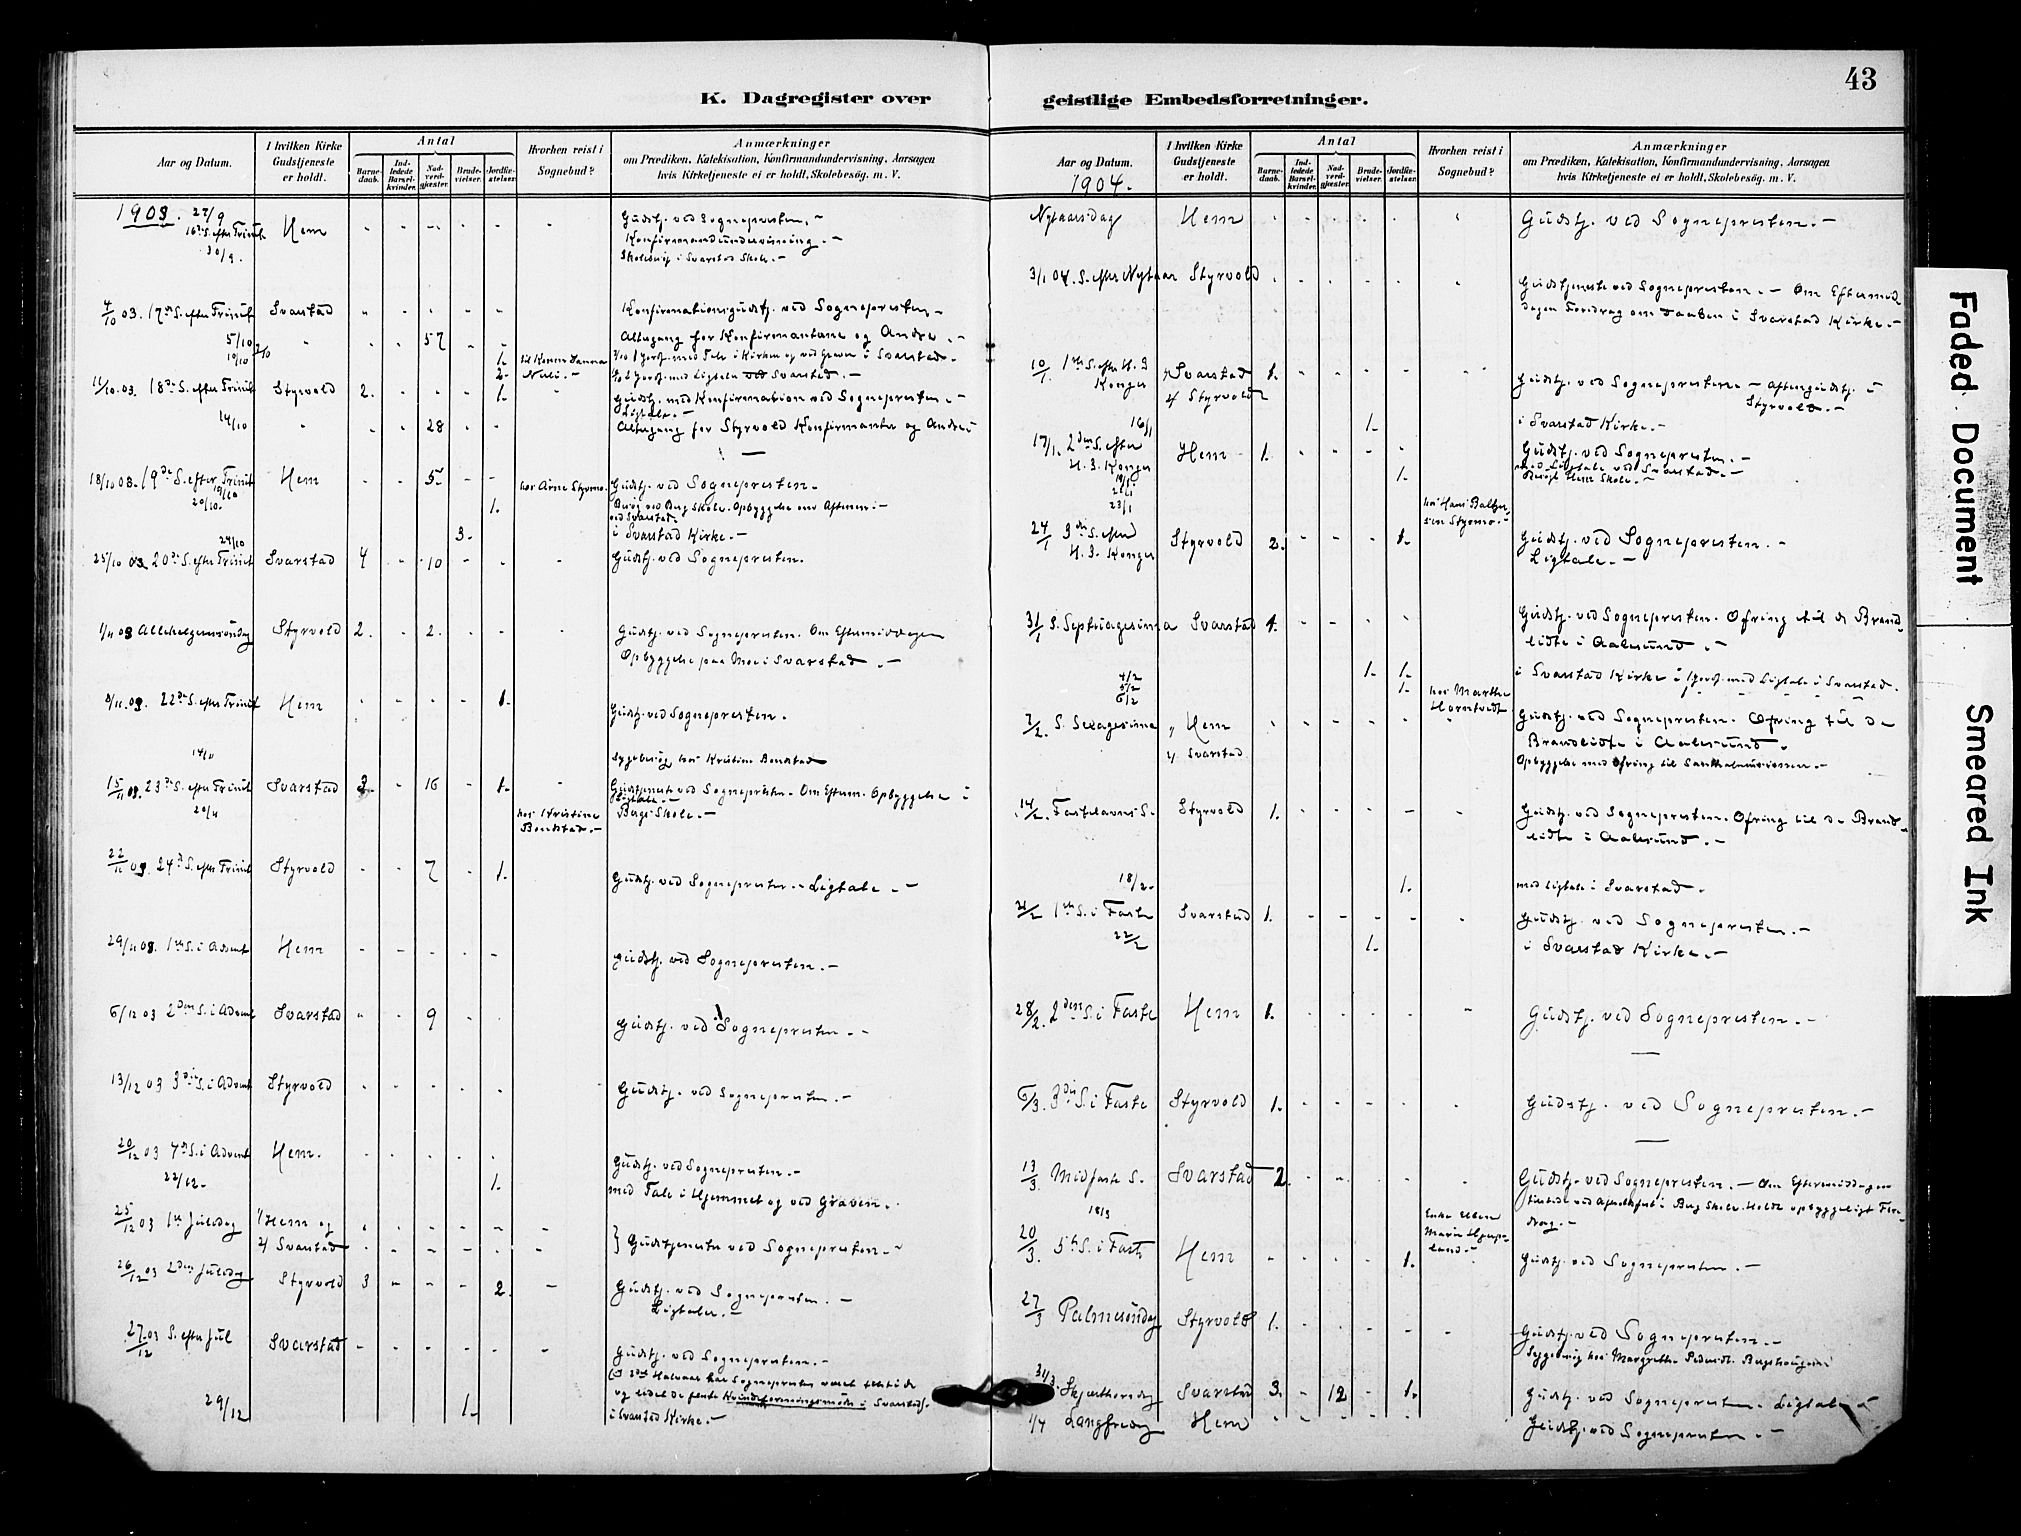 43
K. Dagregister over
geistlige Embedsforretninger.
Aar og Datum.
I hvilken Kirke Gudstjeneste er holdt.
Antal
Barnedaab.
Indledede Barselkvinder.
Nadverdgjæster.
Brudevielser.
Jordfæstelser.
Hvorhen reist i Sognebud?
Anmærkninger
om Prædiken, Katekisation, Konfirmandundervisning, Aarsagen
hvis Kirketjeneste ei er holdt, Skolebesøg. m. V.
1903. 27/9 16de S. efter Trinit Hem Gudstj. ved Sognepresten. -
Konfirmandundervisning. -
30/9. Skolebesøg i Svarstad Skole. -
4/10 03. 17de S. efter Trinit Svarstad Konfirmationsgudstj. ved Sognepresten -
5/10 " 57 Altergang for Konfirmanterne og Andre. -
10/10 1. med Tale i Kirken og ved Graven i Svarstad. -
2. med Ligtale ved Svarstad. -
11/10 03. 18de S. efter Trinit Styrvold 2. 1. Gudstj. med Konfirmation ved Sognepresten. -
Ligtale. -
14/10 " 28 Altergang for Styrvold Konfirmanter og Andre
18/10 03. 19de S. efter Trinit Hem 5. Gudstj. ved Sognepresten. -
19/10
20/10. 1. hos Arne Styrmo. Besøg ved Berg Skole. Opbyggelse om Aftenen. -
ved Svarstad.
24/10 3. i Svarstad Kirke. -
25/10 03 20de S. efter Trinit Svarstad 4 10 Gudstj. ved Sognepresten.
1/11 03 Allehelgensøndag Styrvold 2. 2. Gudstj. ved Sognepresten. Om Eftermiddagen
Opbyggelse paa Moe i Svarstad. -
8/11. 03. 22de S. efter Trinit Hem 1. Gudstj. ved Sognepresten.
14/11 Sygebesøg hos Kristine Bondstad
15/11 03. 23de S. efter Trinit Svarstad 3. 16 1. Gudstjeneste ved Sognepresten. Om Efterm. Opbyggelse i
Ligtale. -
20/11 hos Kristine Bondstad. - Bergs Skole. -
22/11 03. 24de S. efter Trinit Styrvold 7 1. Gudstj. ved Sognepresten - Ligtale. -
29/11 03. 1ste S. i Advent Hem Gudstj. ved Sognepresten. -
6/12 03 2den S. i Advent Svarstad 9 Gudstj. ved Sognepresten. -
13/12 03 3die S. i Advent Styrvold Gudstj. ved Sognepresten. -
20/12 03 4de S. i Advent Hem. Gudstj. ved Sognepresten. -
22/12. 1. med Tale i Hjemmet og ved Graven.
25/12 03 1ste Juledag 1/ Hem og
2/ Svarstad } Gudstjeneste ved Sognepresten. -
26/12 03 2den Juledag Styrvold 3 2. Gudstj. ved Sognepresten. -
Ligtaler. -
27/12 03 S. efter Jul Svarstad Gudstj. ved Sognepresten. -
har Sognepresten været tilstede
og ledet de fleste Kvindeforeningsmøder i Svarstad.
29/12 1. i Svarstad Kirke. -
Aar og Datum.
1904.
I hvilken Kirke Gudstjeneste er holdt.
Antal
Barnedaab.
Indledede Barselkvinder.
Nadverdgjæster.
Brudevielser.
Jordfæstelser.
Hvorhen reist i Sognebud?
Anmærkninger
om Prædiken, Katekisation, Konfirmandundervisning, Aarsagen
hvis Kirketjeneste ei er holdt, Skolebesøg. m. V.
Nytaarsdag Hem Gudstj. ved Sognepresten. -
3/1 04. S. efter Nytaar Styrvold Gudstjeneste ved Sognepresten. - Om Eftermid
dagen Foredrag om Daaben i Svarstad Kirke. -
10/1 1ste S. efter H. 3 Konger 1/ Svarstad 1. Gudstj. ved Sognepresten - Aftengudstj. i
2/ Styrvold Styrvold. -
16/1 1. i Svarstad Kirke. -
17/1. 2den S. efter H. 3. Konger Hem 1. Gudstj. ved Sognepresten. -
19/1 1. med Ligtale ved Svarstad. -
21/1 Besøgt Hem Skole. -
23/1 hos Hans Styrmo. -
24/1 3die S. efter H. 3. Konger Styrvold 2. 1. Gudstj. ved Sognepresten. -
Ligtale. -
31/1 S. Septuagesima Svarstad 4. Gudstj. ved Sognepresten. Ofring til de Brand
lidte i Aalesund. -
4/2 1. 1. i Svarstad Kirke med Ligtale i Svarstad.
5/2 1.
6/2 hos Marthe Hornstvedt
7/2. S. Sexagesima 1/ Hem Gudstj. ved Sognepresten. Ofring til de
Brandlidte i Aalesund.
2/ Svarstad Opbyggelse med Ofring til Santhalmissionen. -
14/2. Fastelavns S. Styrvold 1. Gudstj. ved Sognepresten. Ofring til de Brand
lidte i Aalesund. -
18/2. 1. med Ligtale i Svarstad.
21/2 1ste S. i Faste Svarstad 1. Gudstj. ved Sognepresten. -
22/2 1. i Svarstad Kirke. -
28/2. 2den S. i Faste Hem 1. Gudstj. ved Sognepresten. -
6/3. 3die S. i Faste Styrvold 1. Gudstj. ved Sognepresten. -
13/3 Midfaste S. Svarstad 2 Gudstj. ved Sognepresten. - Om Eftermiddagen
tilstede ved i Berg Skole. Holdt opbyggeligt Fore-
drag. -
18/3 Enke Ellen Marie
20/3. 5te S. i Faste Hem 1. Gudstj. ved Sognepresten. -
27/3 Palmesøndag Styrvold 1. Gudstj. ved Sognepresten. -
Sygebesøg hos Margrethe
31/3. Skjærthorsdag Svarstad 3. 12 1. Gudstj. ved Sognepresten. Ligtale
1/4 Langfredag Hem Gudstj. ved Sognepresten. -
Faded Document
Smeared Ink